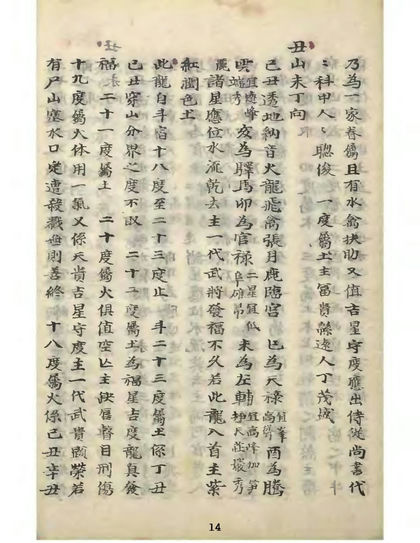 乃為一家眷屬且有水禽扶助又值吉星守度應出侍從尚書代
〻科甲人〻聰俊 一度屬土主富貴綿遠人丁茂城
丑山未丁向
己丑透地納音火龍飛禽張月鹿臨宮 巳為天祿宜峯高聳 酉為騰
雲宜遠峰端秀 亥為驛馬卯為官祿二星宜低 未為左輔宜高峰加
諸星應位水流乾去主一代武將發福不久若此龍入首主紫
紅潤色土
此龍自斗宿十八度至二十三度止 斗二十三度屬土係丁丑
己丑穿山分界之度不取 二十二度屬土為福星吉度龍真發
福 二十一度屬土 二十度屬火俱值空亡主缺唇瞽目刑傷
十九度屬火体用一氣又係天貴吉星守度主一代武貴顯榮若
有尸山塞水口定遭殺戮無則善終 十八度屬火係己丑辛丑
丑
14